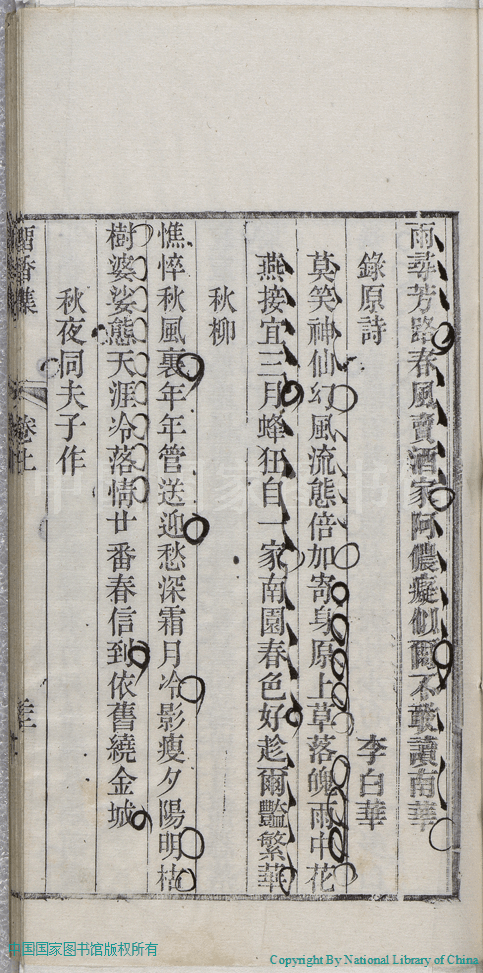 雨尋芳路春風賣酒家阿儂癡似爾不敢讀南華
錄原詩
李白華
莫笑神仙幻風流態倍加寄身原上草落魄雨中花
燕接宜三月蜂狂自一家南園春色好趁爾豔繁華
秋柳
憔悴秋風裏年年管送迎愁深霜月冷影瘦夕陽明枯
樹婆娑態天涯冷落情廿番春信到依舊繞金城
秋夜同夫子作
香集
卷上
中国国家图书馆版权所有
Copyright By National Library of China